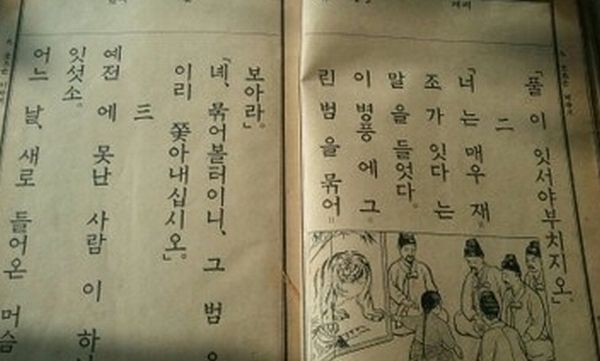 「풀이 잇서야 부치지오.」
二
「너는 매우 재
조가 잇다는
말을 들엇다.
이 병풍에 그
린 범을 묶어
보아라」.
「녜, 묶어볼터이니, 그 범
이리 쫓아내십시오」.
三
예전에 못난 사람이
잇섯소.
어느 날, 새로 들어온 머슴